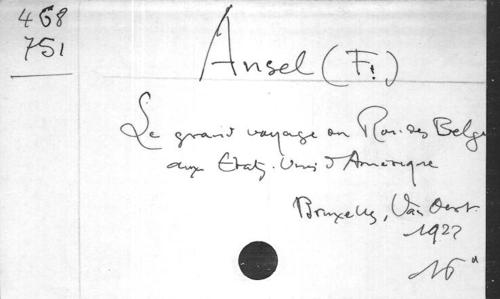 468
751
Ansel (F.)
Le grand voyage du Roi des Belges
aux Etats-Unis d'Amérique
Bruxelles, Van Oest
1922
16°